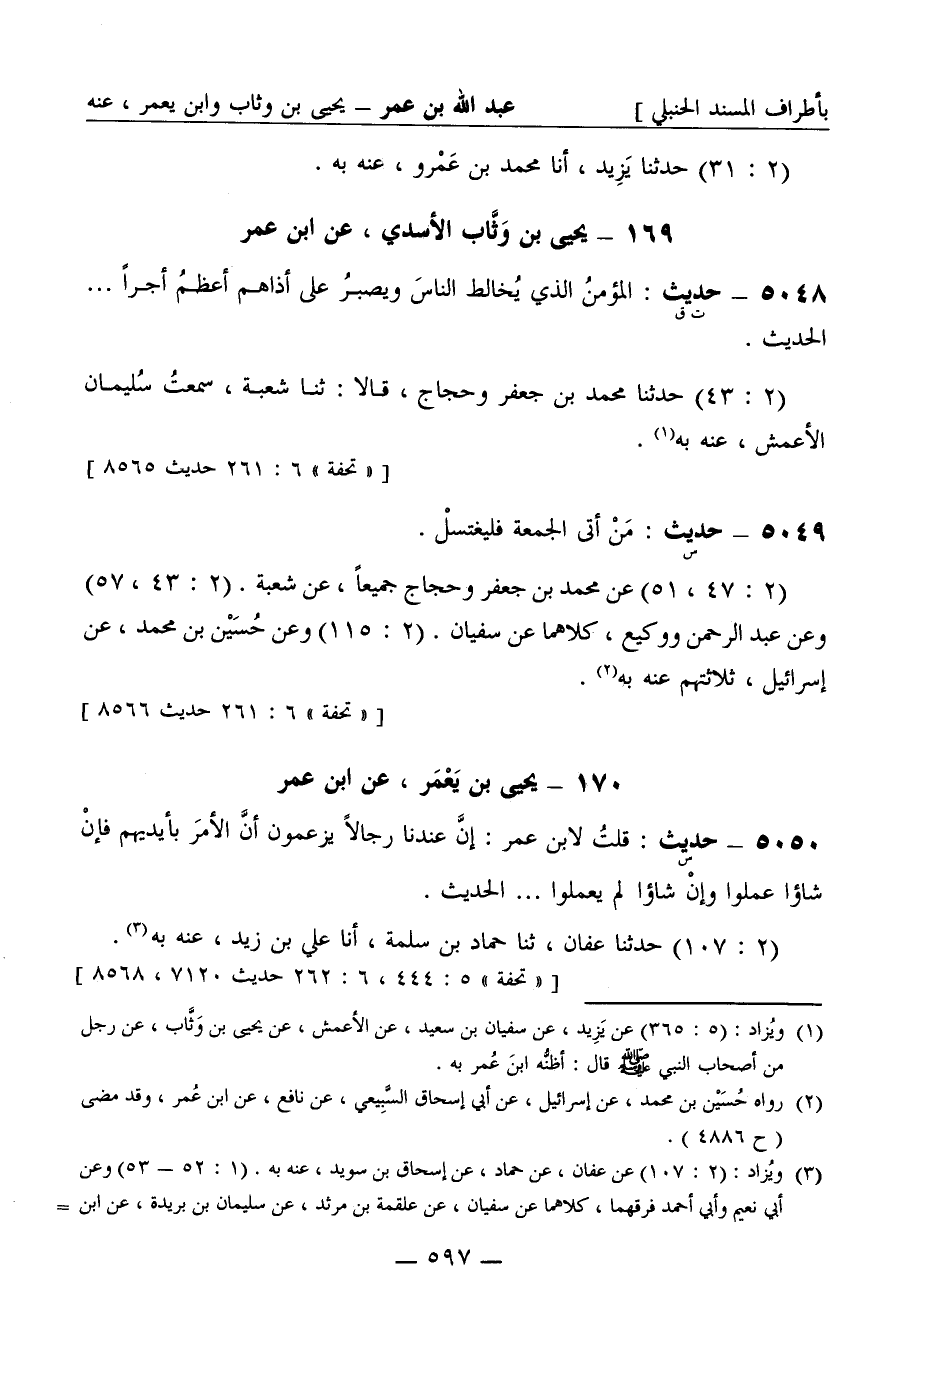 بأطراف المسند الحنبلي ] عبد الله بن عمر – يحيى بن وثاب وابن يعمر ، عنه
(٢ : ٣١) حدثنا يَزِيد ، أنا محمد بن عَمْرو ، عنه به .
١٦٩ – يحيى بن وَثَّاب الأسدي ، عن ابن عمر
٥٠٤٨ – حديث : المؤمنُ الذي يُخالط الناسَ ويصبرُ على أذاهم أعظمُ أجراً ...
ت ق
الحديث .
(٢ : ٤٣) حدثنا محمد بن جعفر وحجاج ، قالا : ثنا شعبة ، سمعتُ سُليمان
الأعمش ، عنه به(١) .
[ « تحفة » ٦ : ٢٦١ حديث ٨٥٦٥ ]
٥٠٤٩ – حديث : مَنْ أتى الجمعة فليغتسلْ .
س
(٢ : ٤٧ ، ٥١) عن محمد بن جعفر وحجاج جميعاً ، عن شعبة . (٢ : ٤٣ ، ٥٧)
وعن عبد الرحمن ووكيع ، كلاهما عن سفيان . (٢ : ١١٥) وعن حُسَيْن بن محمد ، عن
إسرائيل ، ثلاثتهم عنه به(٢) .
[ « تحفة » ٦ : ٢٦١ حديث ٨٥٦٦ ]
١٧٠ – يحيى بن يَعْمَر ، عن ابن عمر
٥٠٥٠ – حديث : قلتُ لابن عمر : إنَّ عندنا رجالاً يزعمون أنَّ الأمرَ بأيديهم فإنْ
س
شاؤا عملوا وإنْ شاؤا لم يعملوا ... الحديث .
(٢ : ١٠٧) حدثنا عفان ، ثنا حماد بن سلمة ، أنا علي بن زيد ، عنه به(٣) .
[ « تحفة » ٥ : ٤٤٤ ، ٦ : ٢٦٢ حديث ٧١٢٠ ، ٨٥٦٨ ]
(١) ويُزاد : (٥ : ٣٦٥) عن يَزِيد ، عن سفيان بن سعيد ، عن الأعمش ، عن يحيى بن وَثَّاب ، عن رجل
من أصحاب النبي ﷺ قال : أظنُّه ابنَ عُمر به .
(٢) رواه حُسَيْن بن محمد ، عن إسرائيل ، عن أبي إسحاق السَّبِيعي ، عن نافع ، عن ابن عُمر ، وقد مضى
( ح ٤٨٨٦ ) .
(٣) ويُزاد : (٢ : ١٠٧) عن عفان ، عن حماد ، عن إسحاق بن سويد ، عنه به . (١ : ٥٢ – ٥٣) وعن
أبي نعيم وأبي أحمد فرقهما ، كلاهما عن سفيان ، عن علقمة بن مرثد ، عن سليمان بن بريدة ، عن ابن =
– ٥٩٧ –